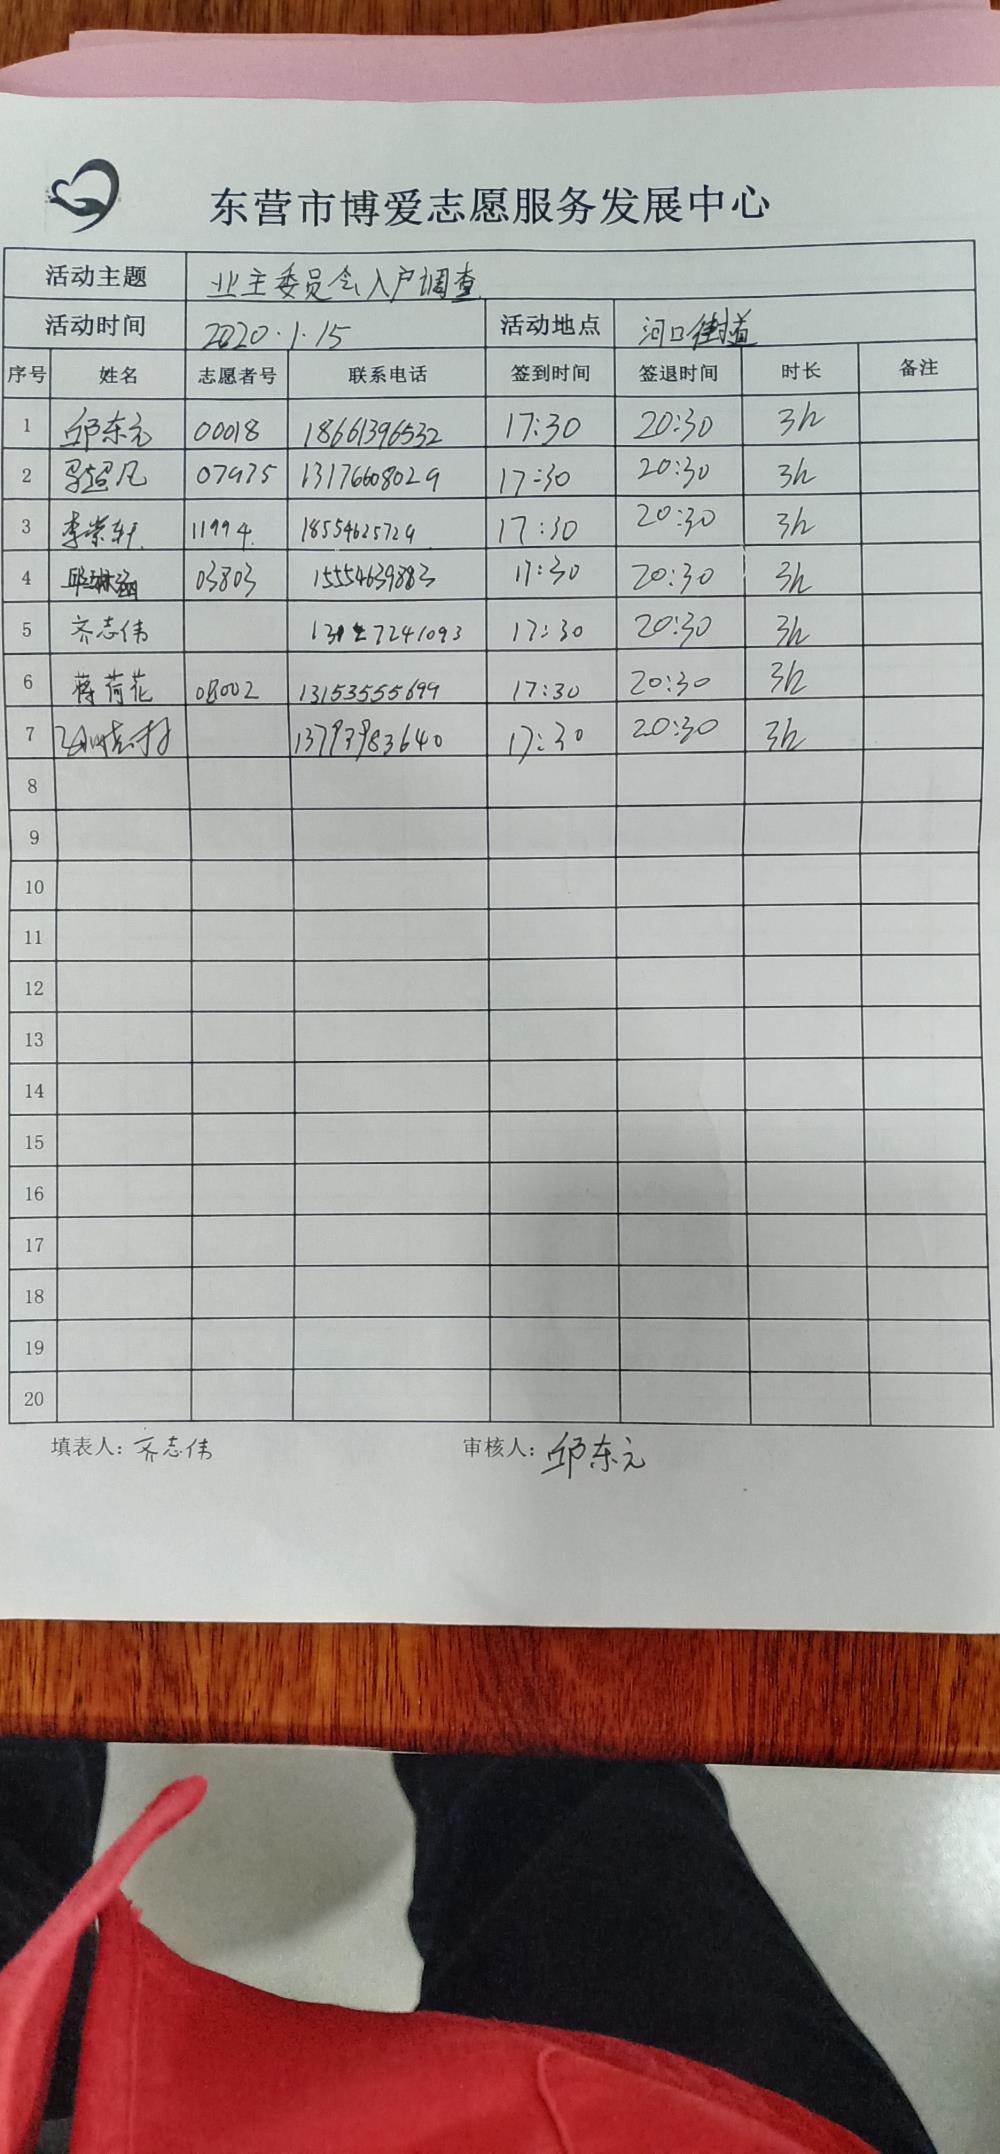 东营市博爱志愿服务发展中心
活动主题 业主委员会入户调查
活动时间 2020.1.15 活动地点 河口街道
序号 姓名 志愿者号 联系电话 签到时间 签退时间 时长 备注
1 邱东元 00018 18661396532 17:30 20:30 3h
2 超凡 07975 13176608029 17:30 20:30 3h
3 李崇轩 11994 18554625729 17:30 20:30 3h
4 邱琳涵 03803 15554639883 17:30 20:30 3h
5 齐志伟 17:30 20:30 3h
6 蒋荷花 08002 13153555699 17:30 20:30 3h
7 13793983640 17:30 20:30 3h
8
9
10
11
12
13
14
15
16
17
18
19
20
填表人：齐志伟 审核人：邱东元